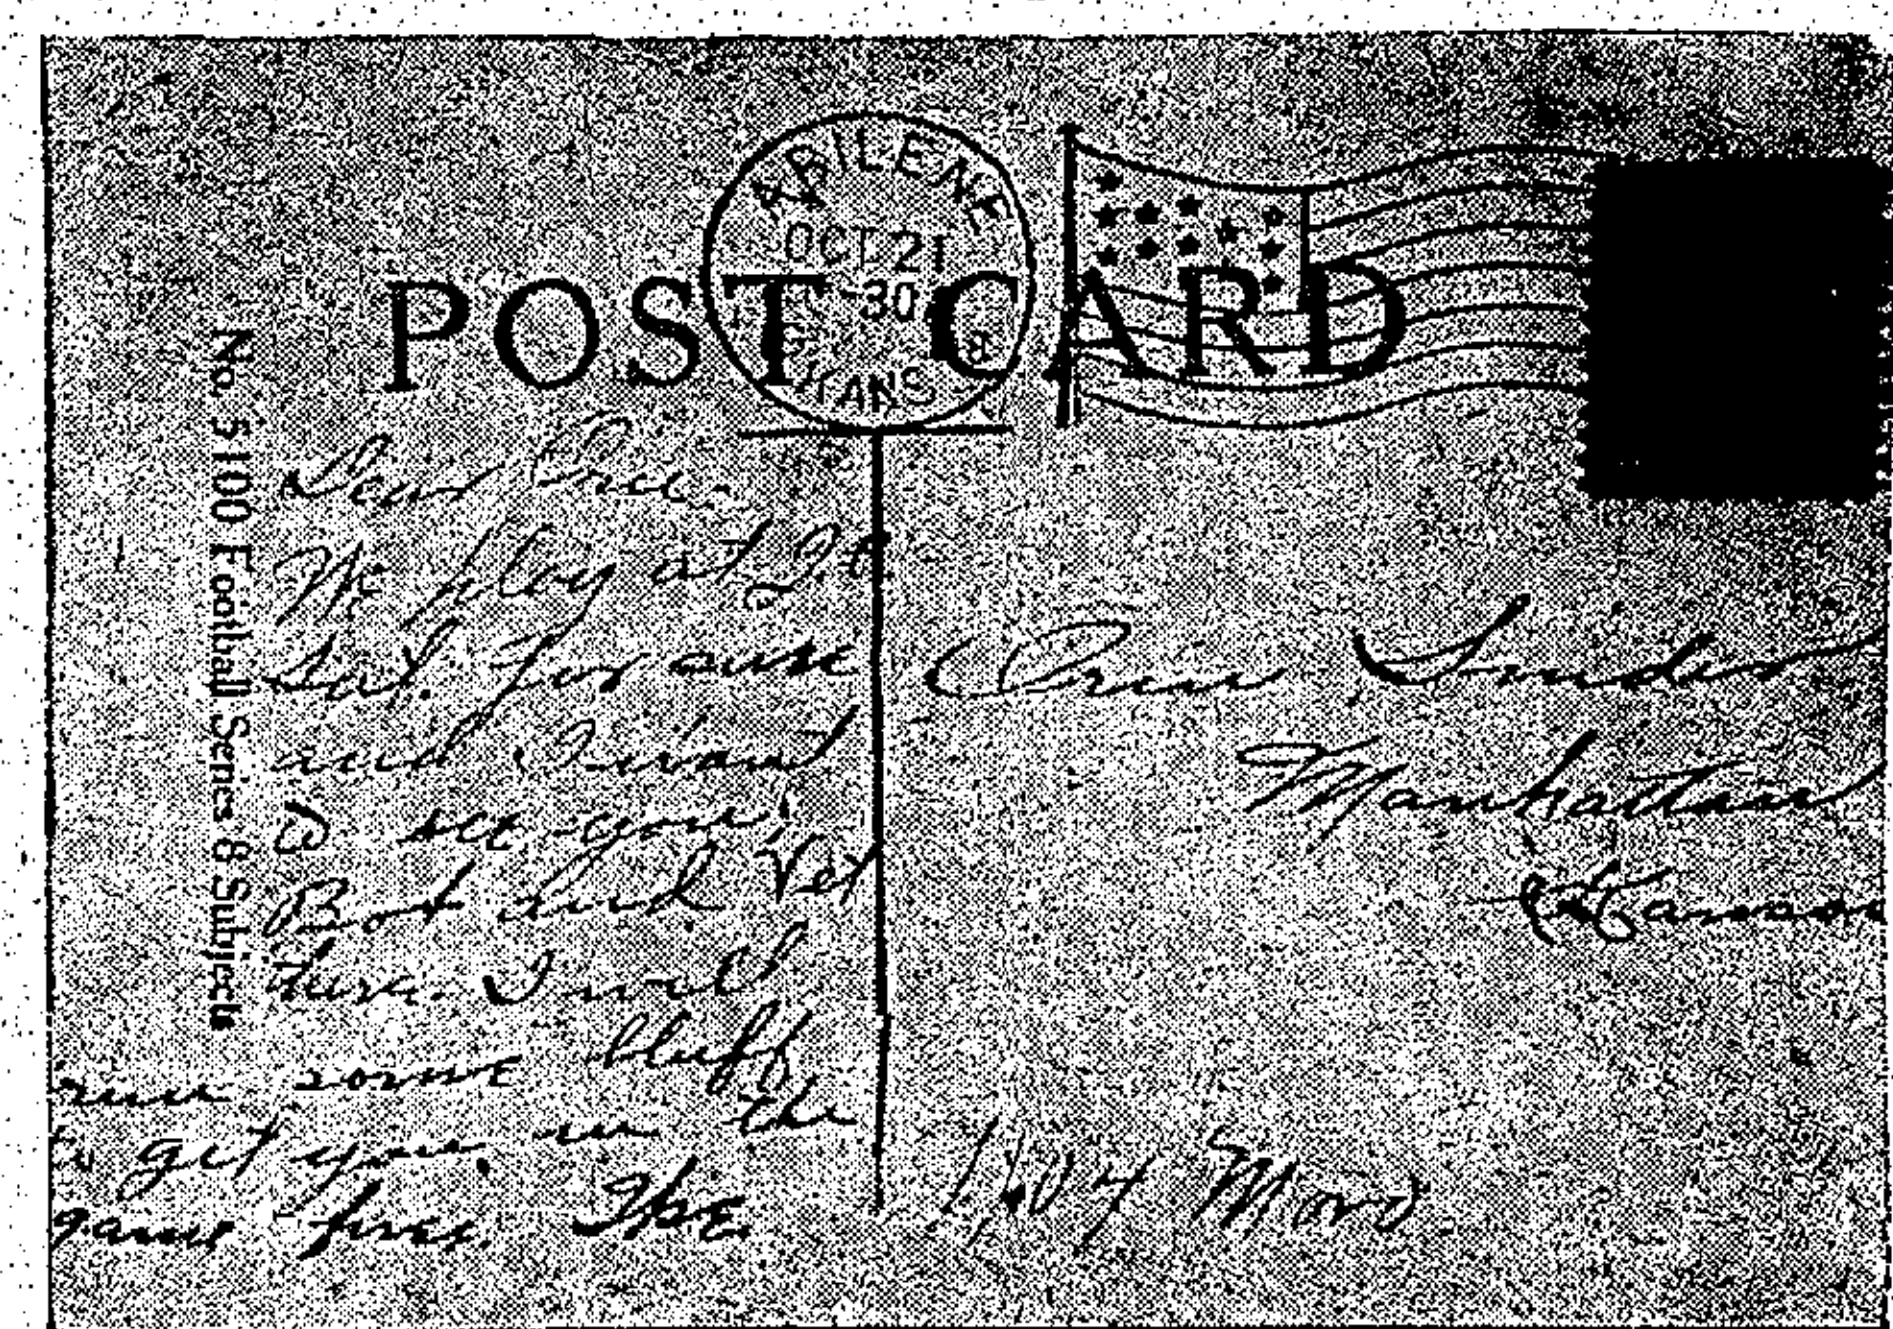 ABILENE
OCT 21
-30
KANS
POST CARD
No. 5100 Football Series 8 Subjects
Dear
We play at J.C.
Sat. for sure
and I want
to see you
Bert and Vet
there. I will
run some bluff
to get you in the
game free. Ike
Orin Snider
Manhattan
Kansas
1104 Moro